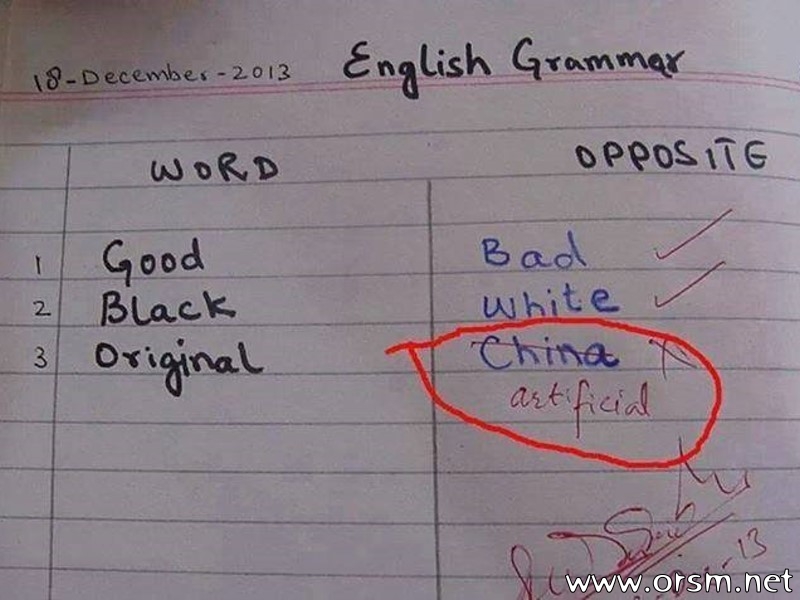 18-December-2013 English Grammar
WORD OPPOSITE
1 Good Bad
2 Black White
3 Original China
artificial
www.orsm.net